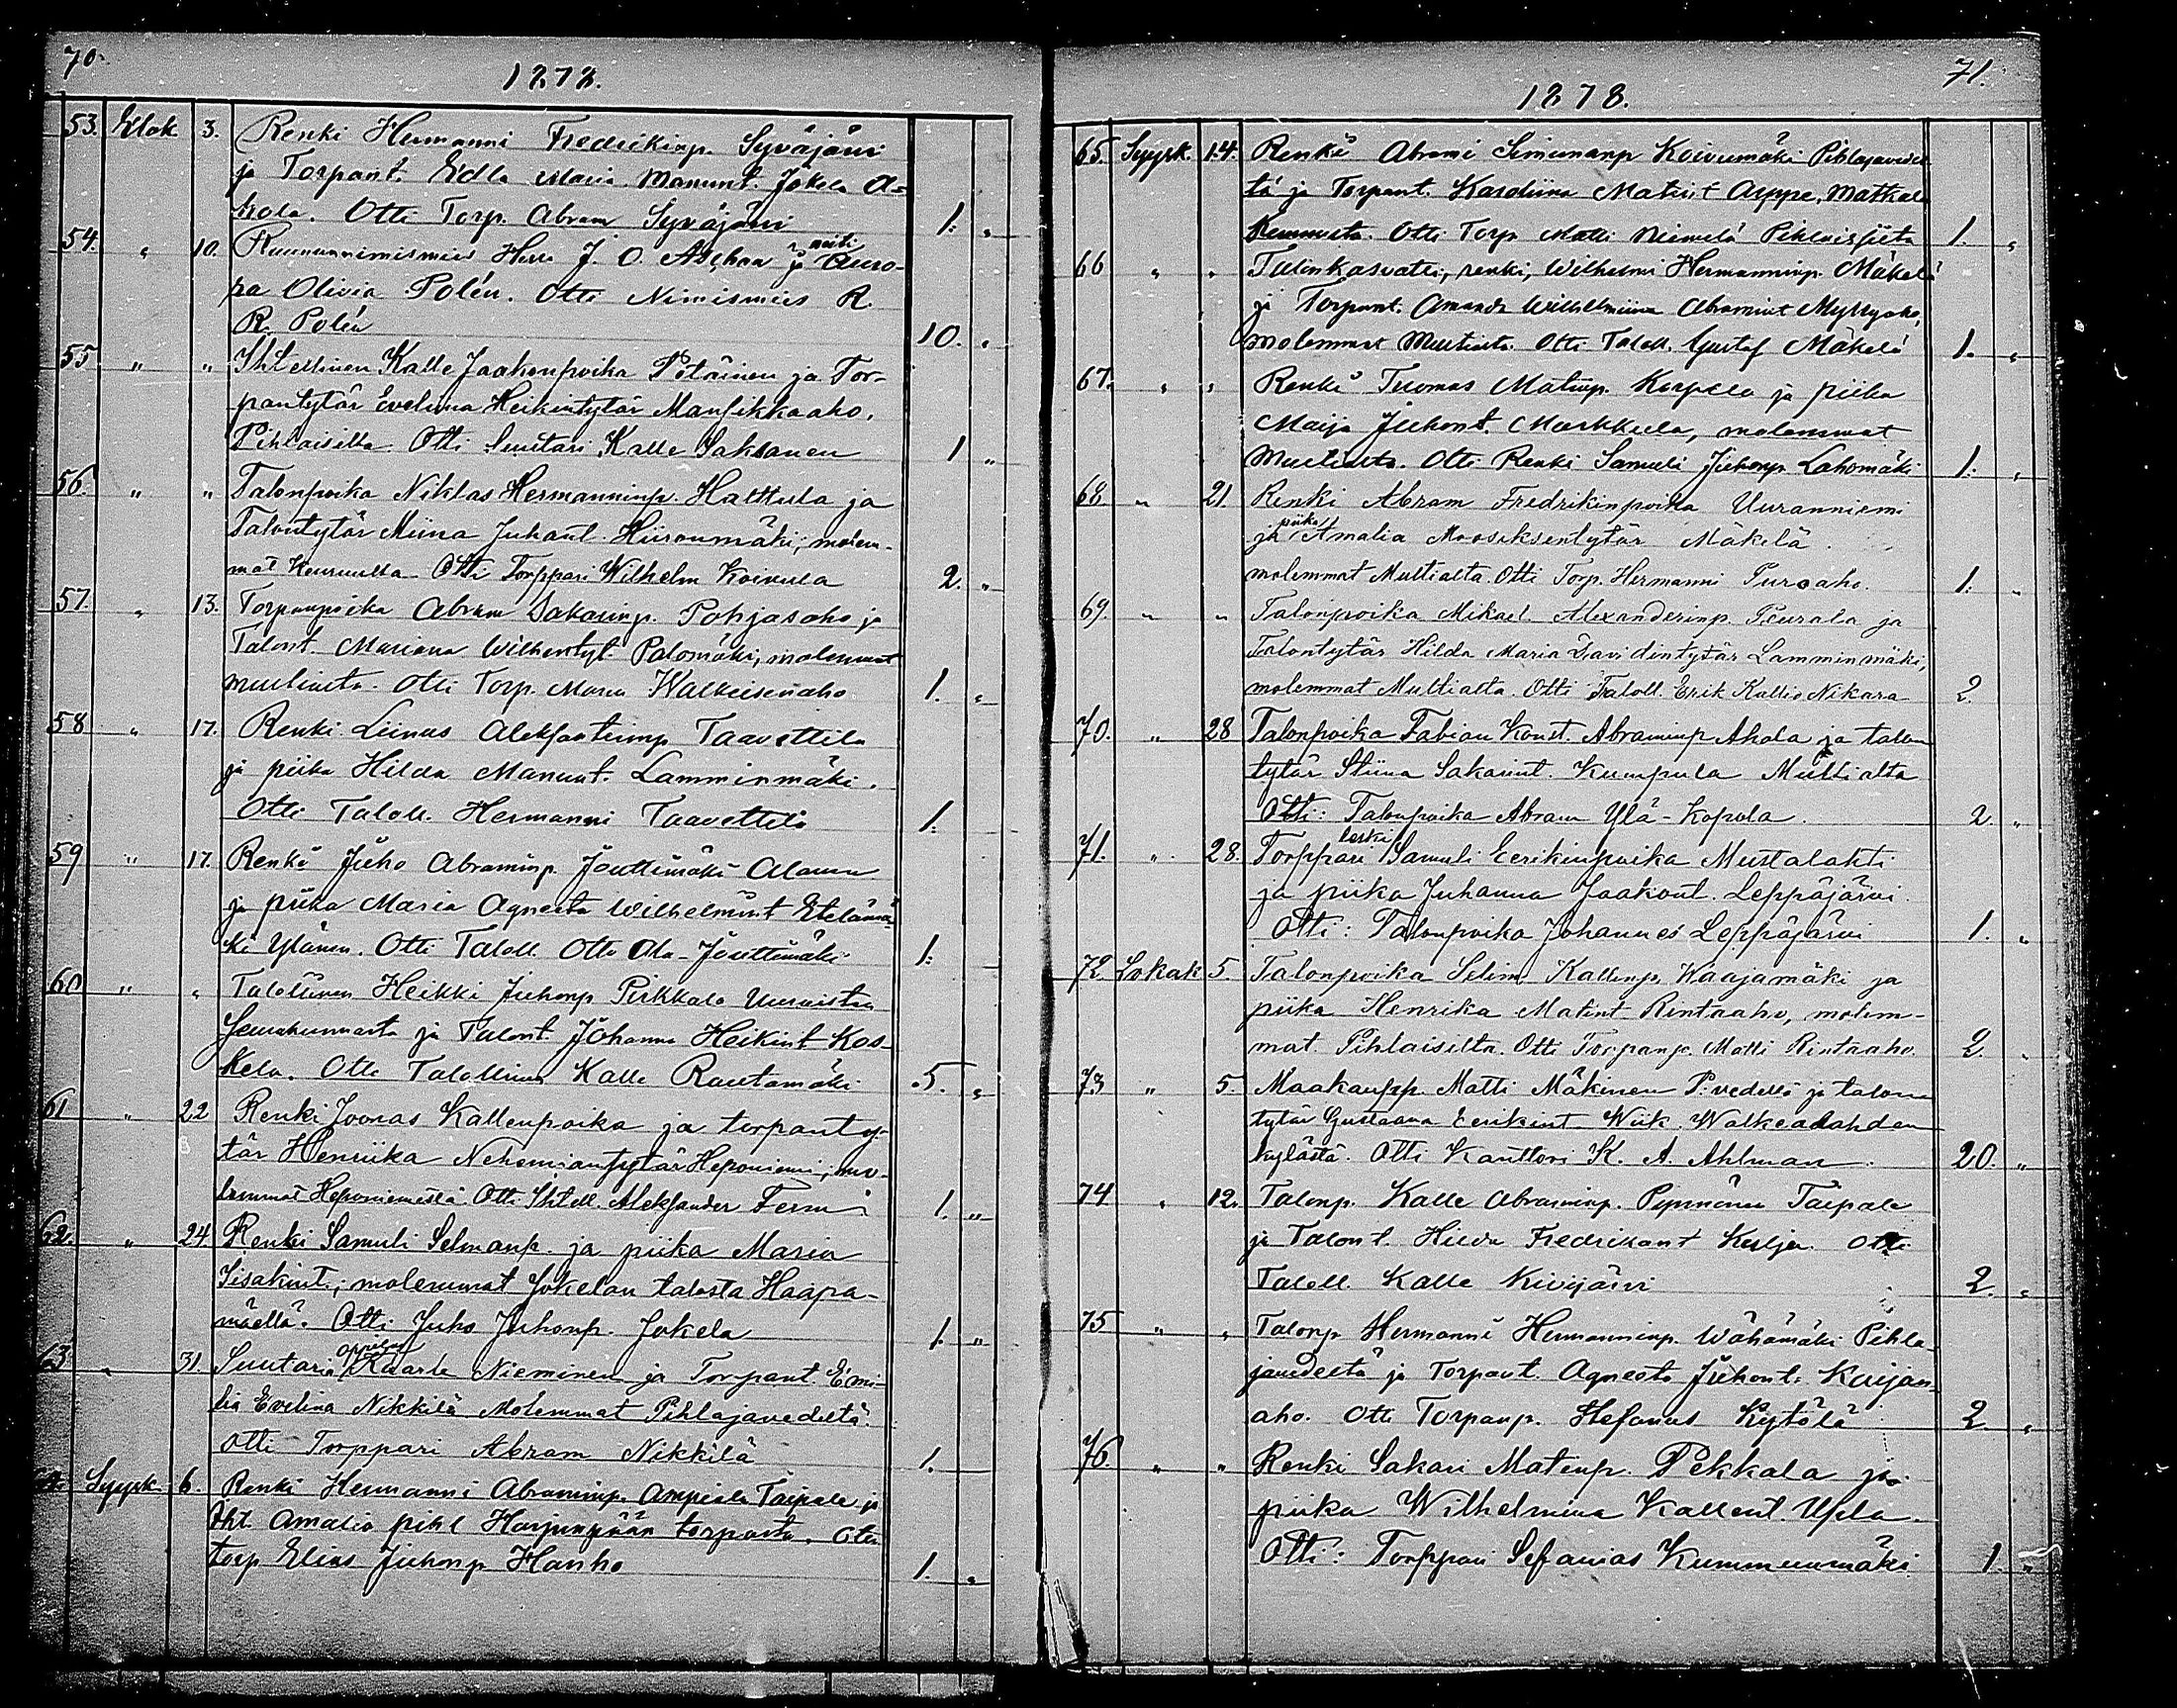 70.
1878.
53. Elok 3. Renki Hermanni Fredrikinp. Syväjärvi
ja Torpant. Edla Maria Manunt. Jokela A-
hola. Otti Torp. Abram Syväjärvi 1. „
54. „ 10. Ruununnimismies Herra J. O. Aschan ja neiti Auro-
ra Olivia Polén. Otti Nimismies R.
R. Polén 10. „
55 „ „ Ihtellinen Kalle Jaakonpoika Pötäinen ja Tor-
pantytär Evelina Heikintytär Mansikkaaho,
Pihlaisilta. Otti Suutari Kalle Saksanen 1 „
56. „ „ Talonpoika Niklas Hermanninp. Hallula ja
Talontytär Miina Juhant. Hiironmäki; molem-
mat Keuruulta. Otti Torppari Wilhelm Koivula 2. „
57. „ 13. Torpanpoika Abram Sakarinp. Pohjasaho ja
Talont. Mariana Wilhentyt. Palomäki, molemmat
multialta. Otti Torp. Manu Walkeisenaho 1. „
58 „ 17. Renki Liinus Aleksanterinp Taavettila
ja piika Hilda Manunt. Lamminmäki.
Otti Taloll. Hermanni Taavettila 1.
59 „ 17. Renki Juho Abraminp. Jouttimäki Alanen
ja piika Maria Agneeta Wilhelmint Etelämä-
ki Ylänen. Otti Taloll. Otto Ala-Jouttimäki 1.
60 „ „ Talollinen Heikki Juhonp Pirkkala
Seurakunnasta ja Talont. Johanna Heikint Kos-
kela. Otti Talollinen Kalle Rautamäki 5. „
61 „ 22 Renki Joonas Kallenpoika ja torpanty-
tär Henriika Nehemiantytär Heponiemi; mo-
lemmat Heponiemestä Otti Ihtell. Aleksander Ferm 1. „
62. „ 24 Renki Samuli Selmanp. ja piika Maria
Iisakint.; molemmat Jokelan talosta Haapa-
mäellä. Otti Juho Juhonp. Jokela 1. „
63 „ 31. Suutarin oppilas Kaarle Nieminen ja Torpant. Emi-
lia Evelina Nikkilä Molemmat Pihlajavedeltä.
Otti Torppari Abram Nikkilä 1.
64. Syysk. 6. Renki Hermanni Abraminp. Ampiala Taipale ja
Iht. Amalia Pihl Harjunpään torpasta. Otti
torp Elias Juhonp Hanho 1. „
71.
1878.
65. Syysk. 14. Renki Abrami Simunanp Koivumäki Pihlajavedel-
tä ja Torpant. Karoliina Matint Arppe, Matkala
Keuruulta. Otti Torp Matti Niemelä Pihlaisista 1. „
66 „ „ Talonkasvatti, renki, Wilhelmi Hermanninp. Mäkelä
ja Torpant. Amanda Wilhelmiina Abramint Myllyaho,
molemmat Multialta. Otti Taloll. Gustaf Mäkelä 1. „
67. „ „ Renki Tuomas Matinp. Korpela ja piika
Maija Juhont. Markkula, molemmat
Multialta. Otti Renki Samuli Juhonp. Lahomäki 1. „
68. „ 21. Renki Abram Fredrikinpoika Uuranniemi
ja piika Amalia Mooseksentytär Mäkelä.
molemmat Multialta. Otti Torp. Hermanni Puroaho. 1. „
69. „ „ Talonpoika Mikael Alexanderinp. Peurala ja
Talontytär Hilda Maria Davidintytär Lamminmäki,
molemmat Multialta. Otti Taloll. Erik Kallio Nikara 2.
70. „ 28 Talonpoika Fabian Konst. Abraminp Ahola ja talon
tytär Stiina Sakarint. Kumpula Multialta
Otti: Talonpoika Abram Ylä-Kopola. 2. „
71. „ 28. Torppari leski Samuli Eerikinpoika Mustalahti
ja piika Juhanna Jaakont. Leppäjärvi.
Otti: Talonpoika Johannes Leppäjärvi 1. „
72. Lokak 5. Talonpoika Selim Kallenp. Waajamäki ja
piika Henrika Matint Rintaaho, molem-
mat Pihlaisilta. Otti Torpanp. Matti Rintaaho. 2. „
73 „ 5. Maakaupp. Matti Mäkinen P:vedellä ja talon
tytär Gustaava Eerikint Wiik Walkealahden
kylästä. Otti Kanttori K. A. Ahlman. 20. „
74 „ 12. Talonp. Kalle Abraminp. Taipale
ja Talont. Hilda Fredrikant Kulju. Otti
Taloll. Kalle Kivijärvi 2. „
75 „ „ Talonp Hermanni Hermanninp. Wähämäki Pihla-
javedeltä ja Torpant. Agneeta Juhont. Kuijan-
aho. Otti Torpanp. Stefanus Kytölä 2. „
76. „ „ Renki Sakari Matinp. Pekkala ja
piika Wilhelmina Kallent. Ujula.
Otti: Torppari Sefanias Kummunmäki 1. „